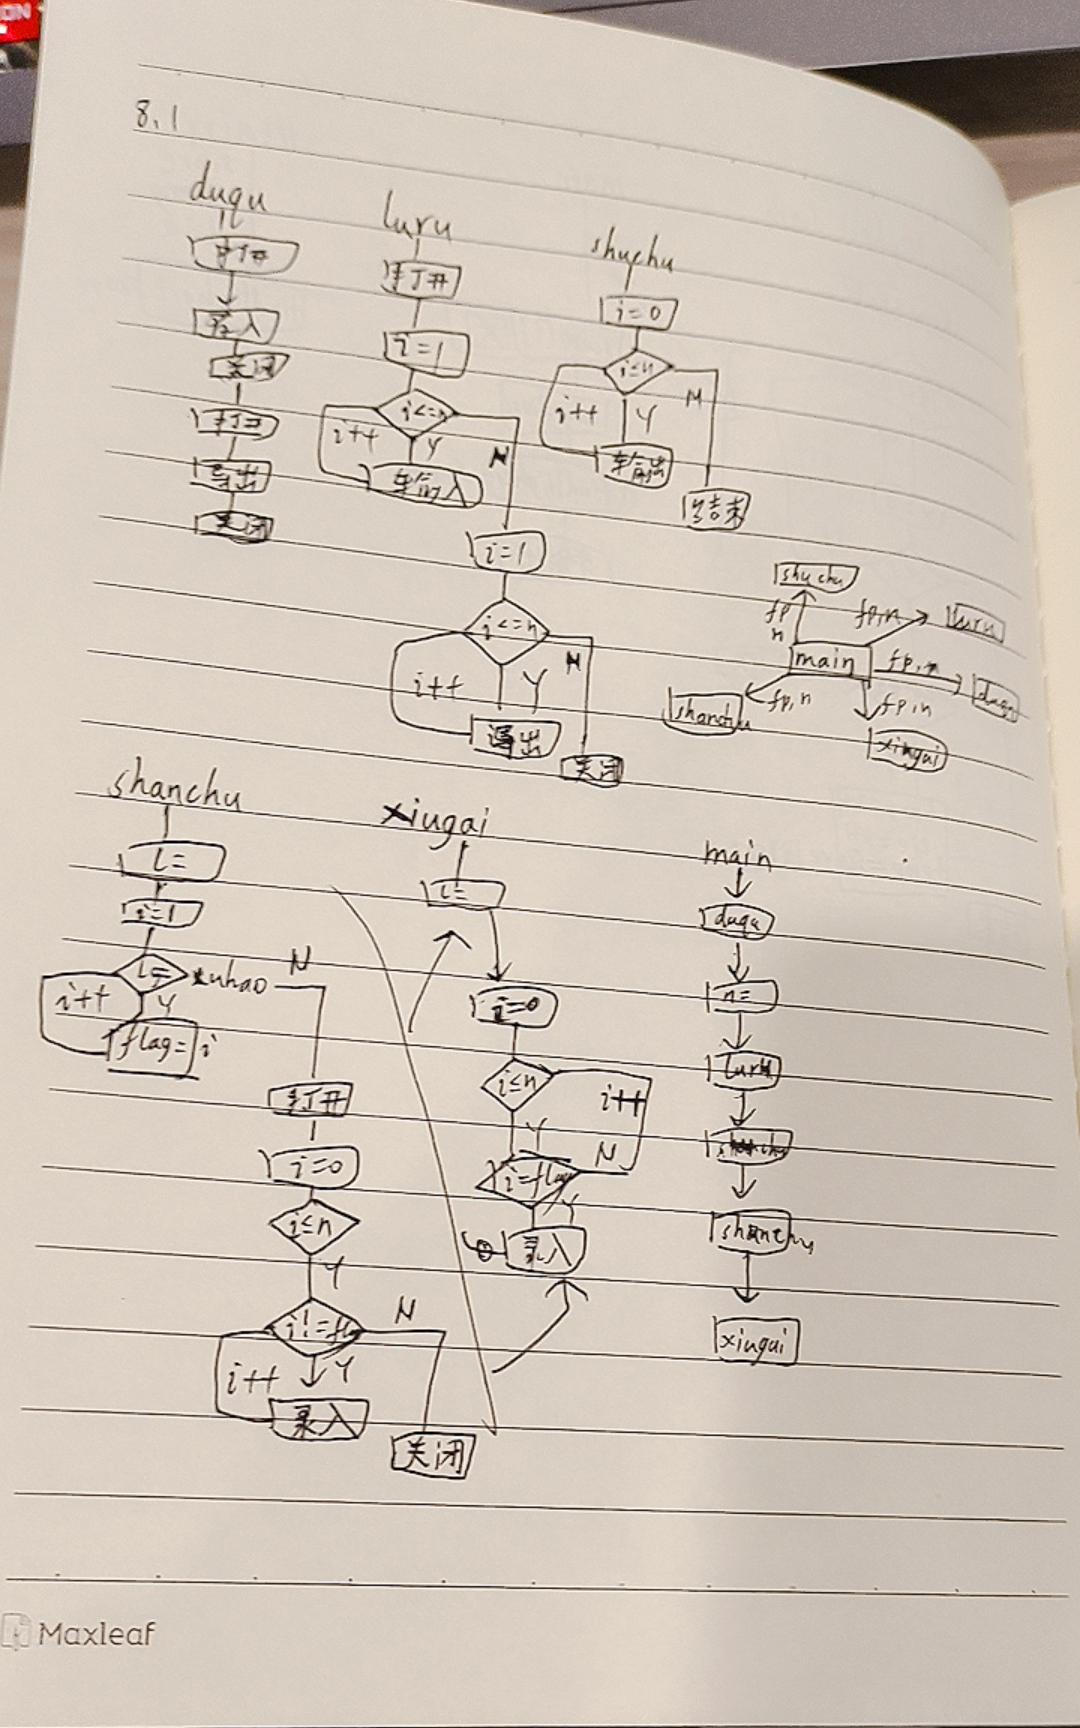 8.1
duqu
打开
写入
关闭
打开
导出
关闭
luru
打开
i=1
i<=n
i++
Y
N
车俞入
i=1
i<=n
i++
Y
N
导出
关闭
shuchu
i=0
i≤n
i++
Y
N
车俞出
结束
shuchu
fp
n
fp,n
luru
main
fp,n
duqu
fp,n
shanchu
fp,n
xiugai
shanchu
l=
i=1
l=
xuhao
N
i++
Y
flag=i
打开
i=0
i≤n
Y
i!=fla
N
i++
Y
录入
关闭
xiugai
l=
i=0
i≤n
i++
Y
N
i=flag
Y
录入
main
duqu
n=
luru
shanchu
xiugai
Maxleaf